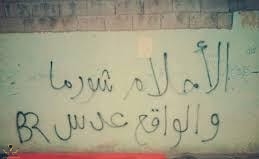 الأحلام شورما
والواقع عدس BR